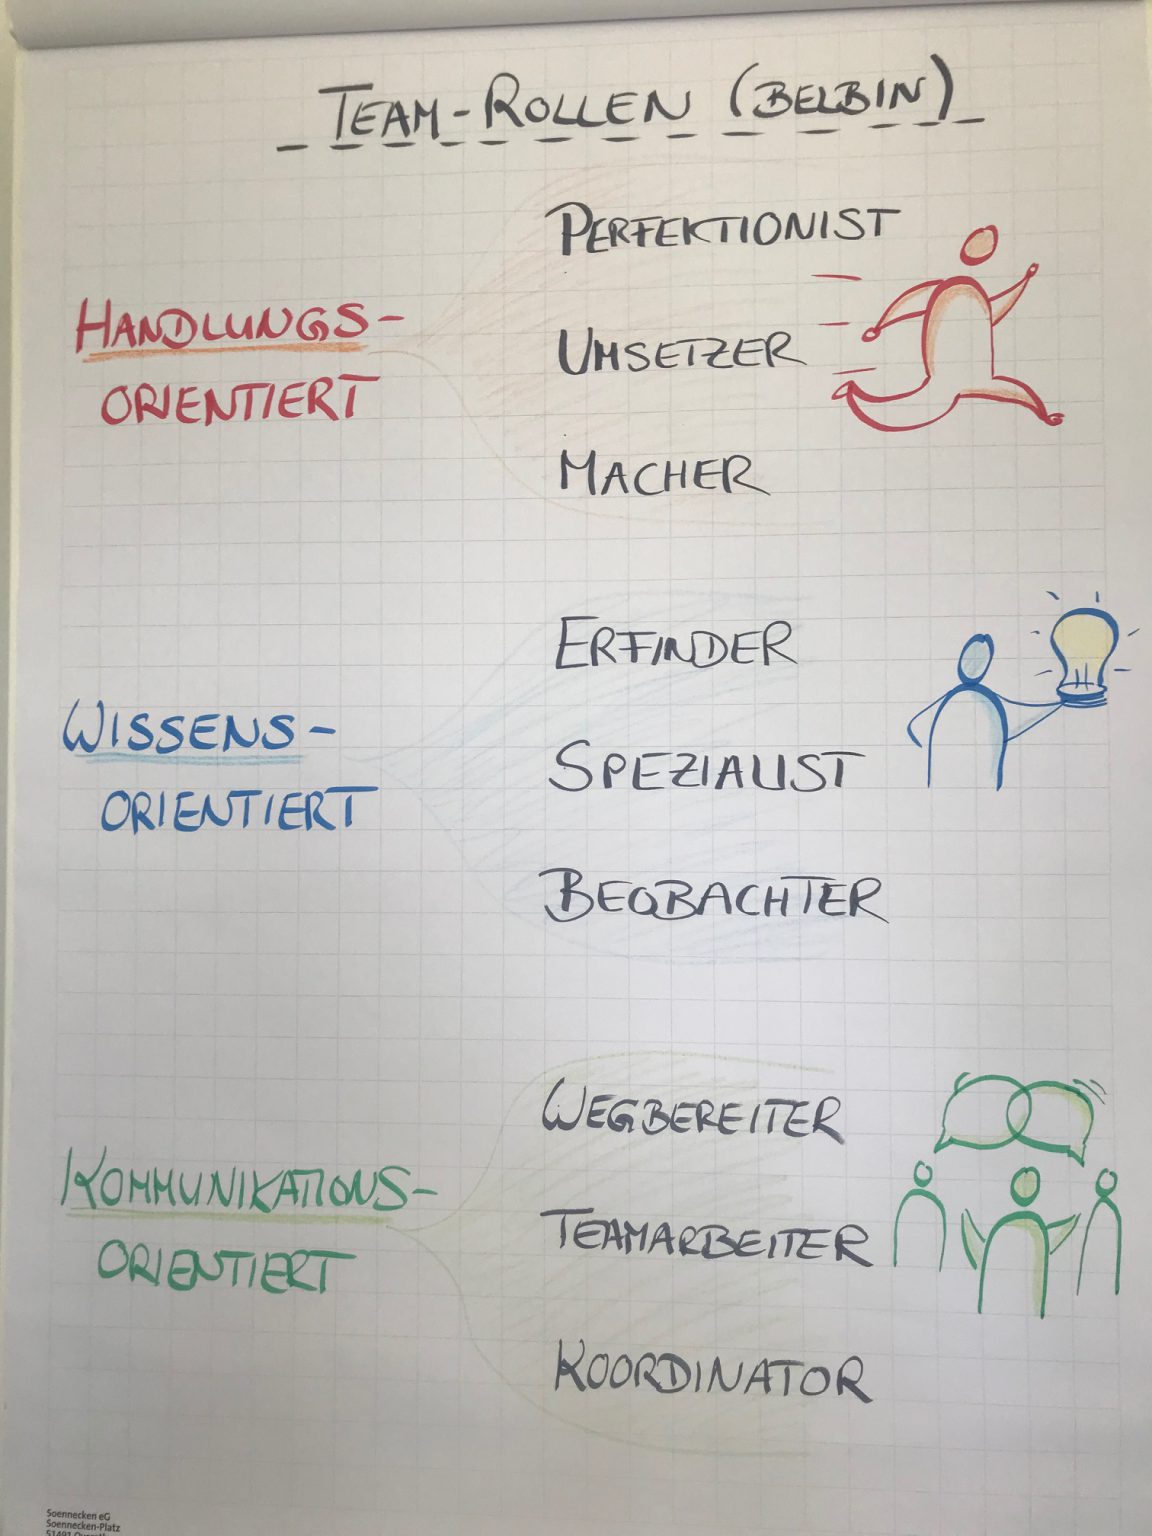 TEAM-ROLLEN (BELBIN)
HANDLUNGS-
ORIENTIERT
PERFEKTIONIST
UMSETZER
MACHER
WISSENS-
ORIENTIERT
ERFINDER
SPEZIALIST
BEOBACHTER
KOMMUNIKATIONS-
ORIENTIERT
WEGBEREITER
TEAMARBEITER
KOORDINATOR
Soennecken eG
Soennecken-Platz
51491